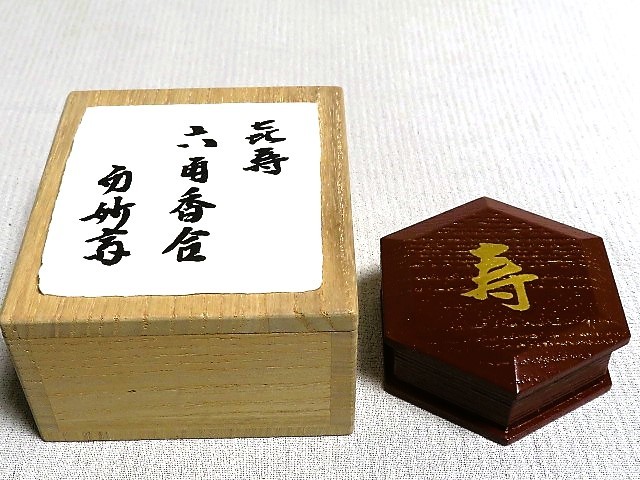 㐂寿
六角香合
而妙斎
寿